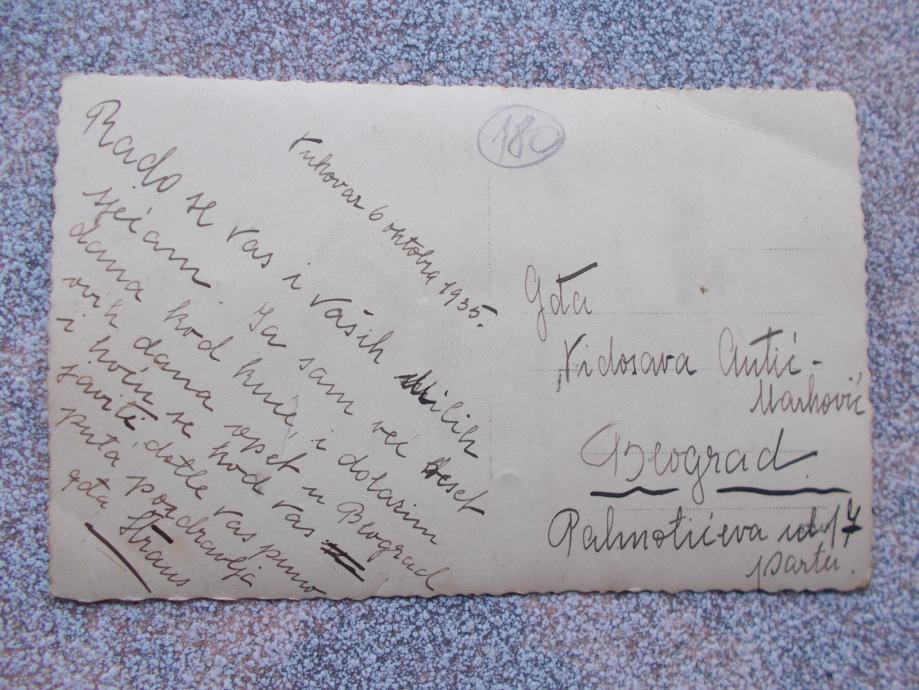 180
Vukovar 6 oktobra 1935.
Rado se Vas i Vaših milih
sjećam. Ja sam već deset
dana kod kuće i dolazim
ovih dana opet u Beograd
i hoću se kod Vas
javiti, dotle Vas puno
puta pozdravlja
gđa Straus
Gđa
Vidosava Antić -
Marković
Beograd
Palmotićeva 17
parter.